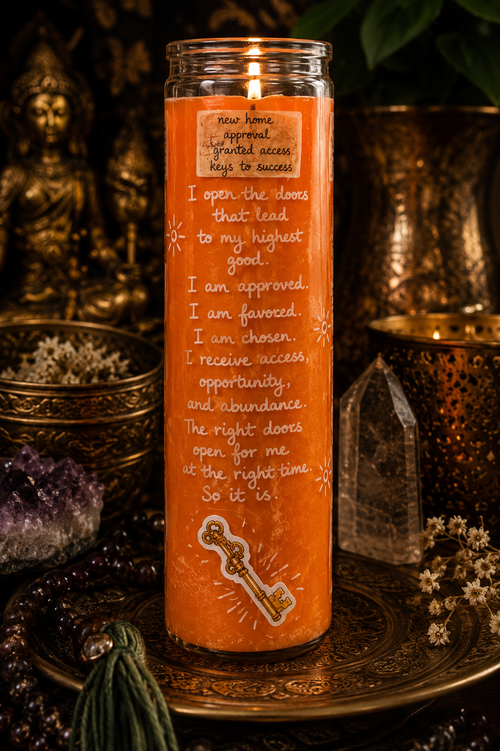 new home
approval
granted access
keys to success
I open the doors
that lead
to my highest
good.
I am approved.
I am favored.
I am chosen.
I receive access,
opportunity,
and abundance.
The right doors
open for me
at the right time.
So it is.